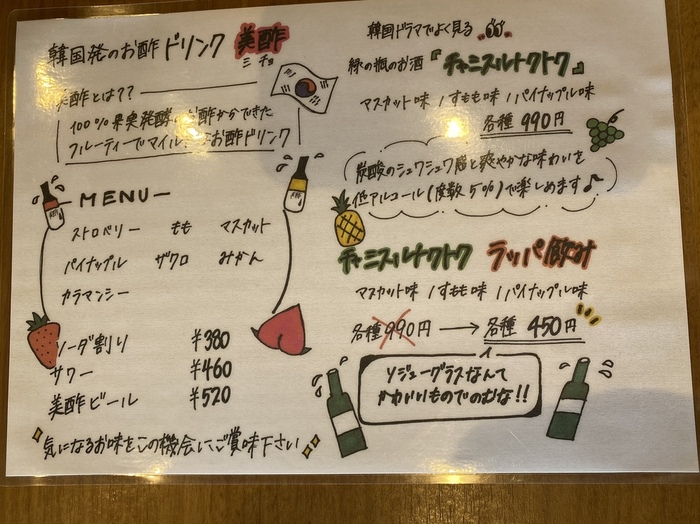 韓国発のお酢ドリンク 美酢
ミチョ
美酢とは??
100%果実発酵のお酢からできた
フルーティーでマイルドなお酢ドリンク
-MENU-
ストロベリー もも マスカット
パイナップル ザクロ みかん
カラマンシー
ソーダ割り ¥380
サワー ¥460
美酢ビール ¥520
気になるお味をこの機会にご賞味下さい
韓国ドラマでよく見る
緑の瓶のお酒『チャミスルトクトク』
マスカット味 / すもも味 / パイナップル味
各種 990円
炭酸のシュワシュワ感と爽やかな味わいを
低アルコール(度数5%)で楽しめます♪
チャミスルトクトク ラッパ飲み
マスカット味 / すもも味 / パイナップル味
各種 990円 → 各種 450円
ソジューグラスなんて
かわいいものでのむな!!